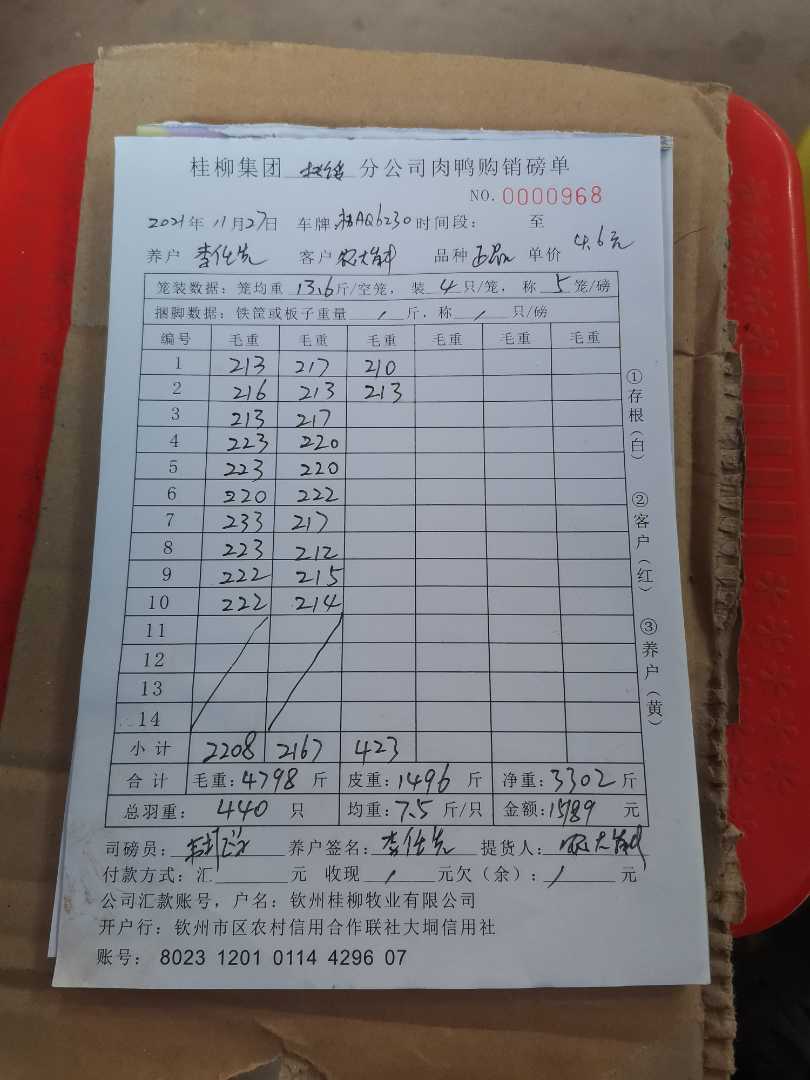 桂柳集团 分公司肉鸭购销磅单
NO. 0000968
2021年 11月27日 车牌:桂AQ6230 时间段: 至
养户 李仕先 客户 品种 单价 4.6元
笼装数据: 笼均重 13.6斤/空笼, 装 4只/笼, 称 5笼/磅
捆脚数据: 铁筐或板子重量 / 斤, 称 / 只/磅
编号 毛重 毛重 毛重 毛重 毛重 毛重
1 213 217 210
2 216 213 213
3 213 217
4 223 220
5 223 220
6 220 222
7 233 217
8 223 212
9 222 215
10 222 214
11
12
13
14
小计 2208 2167 423
合计 毛重:4798斤 皮重:1496斤 净重:3302斤
总羽重: 440 只 均重:7.5斤/只 金额:15189元
司磅员: 养户签名: 李仕先 提货人:
付款方式:汇 元 收现 / 元欠(余): / 元
公司汇款账号, 户名: 钦州桂柳牧业有限公司
开户行: 钦州市区农村信用合作联社大垌信用社
账号: 8023 1201 0114 4296 07
①存根(白)
②客户(红)
③养户(黄)